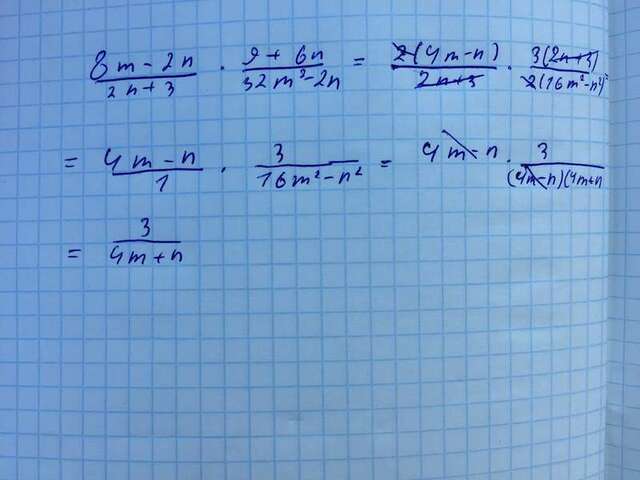 8m-2n/2n+3 · 9+6n/32m²-2n = 2(4m-n)/2n+3 · 3(2n+3)/2(16m²-n²)=
= 4m-n/1 · 3/16m²-n² = 4m-n · 3/(4m-n)(4m+n
= 3/4m+n